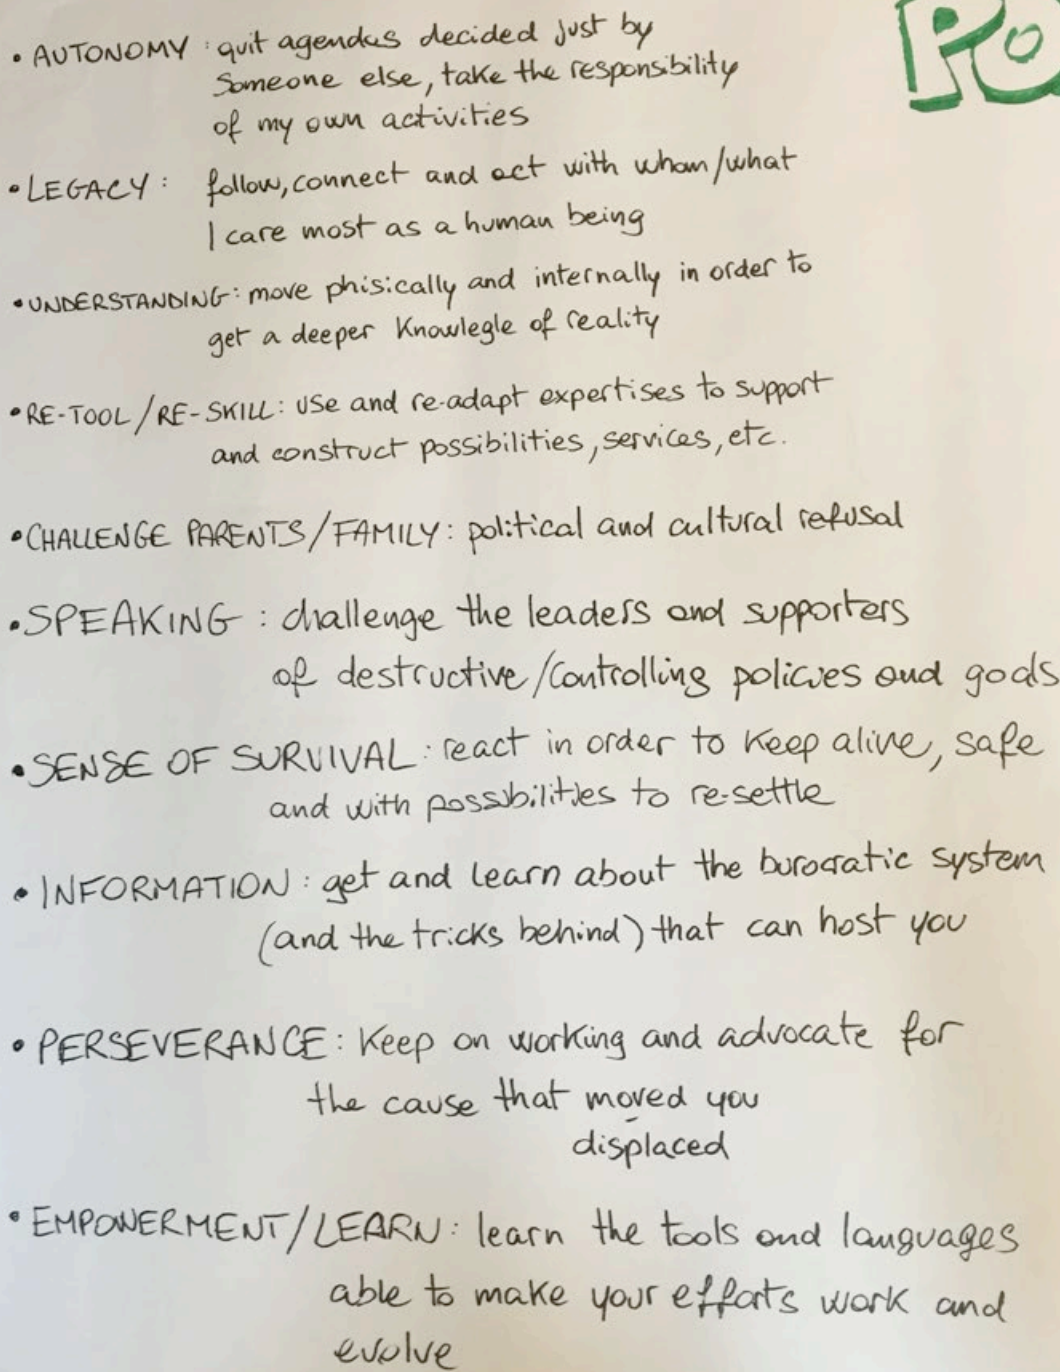 PO
• AUTONOMY : quit agendas decided just by
someone else, take the responsibility
of my own activities
• LEGACY : follow, connect and act with whom/what
I care most as a human being
• UNDERSTANDING : move phisically and internally in order to
get a deeper Knowlegle of reality
• RE-TOOL/RE-SKILL : use and re-adapt expertises to support
and construct possibilities, services, etc.
• CHALLENGE PARENTS/FAMILY : political and cultural refusal
• SPEAKING : challenge the leaders and supporters
of destructive/controlling policies and goals
• SENSE OF SURVIVAL : react in order to keep alive, safe
and with possibilities to re-settle
• INFORMATION : get and learn about the burocratic system
(and the tricks behind) that can host you
• PERSEVERANCE : Keep on working and advocate for
the cause that moved you
displaced
• EMPOWERMENT/LEARN : learn the tools and languages
able to make your efforts work and
evolve